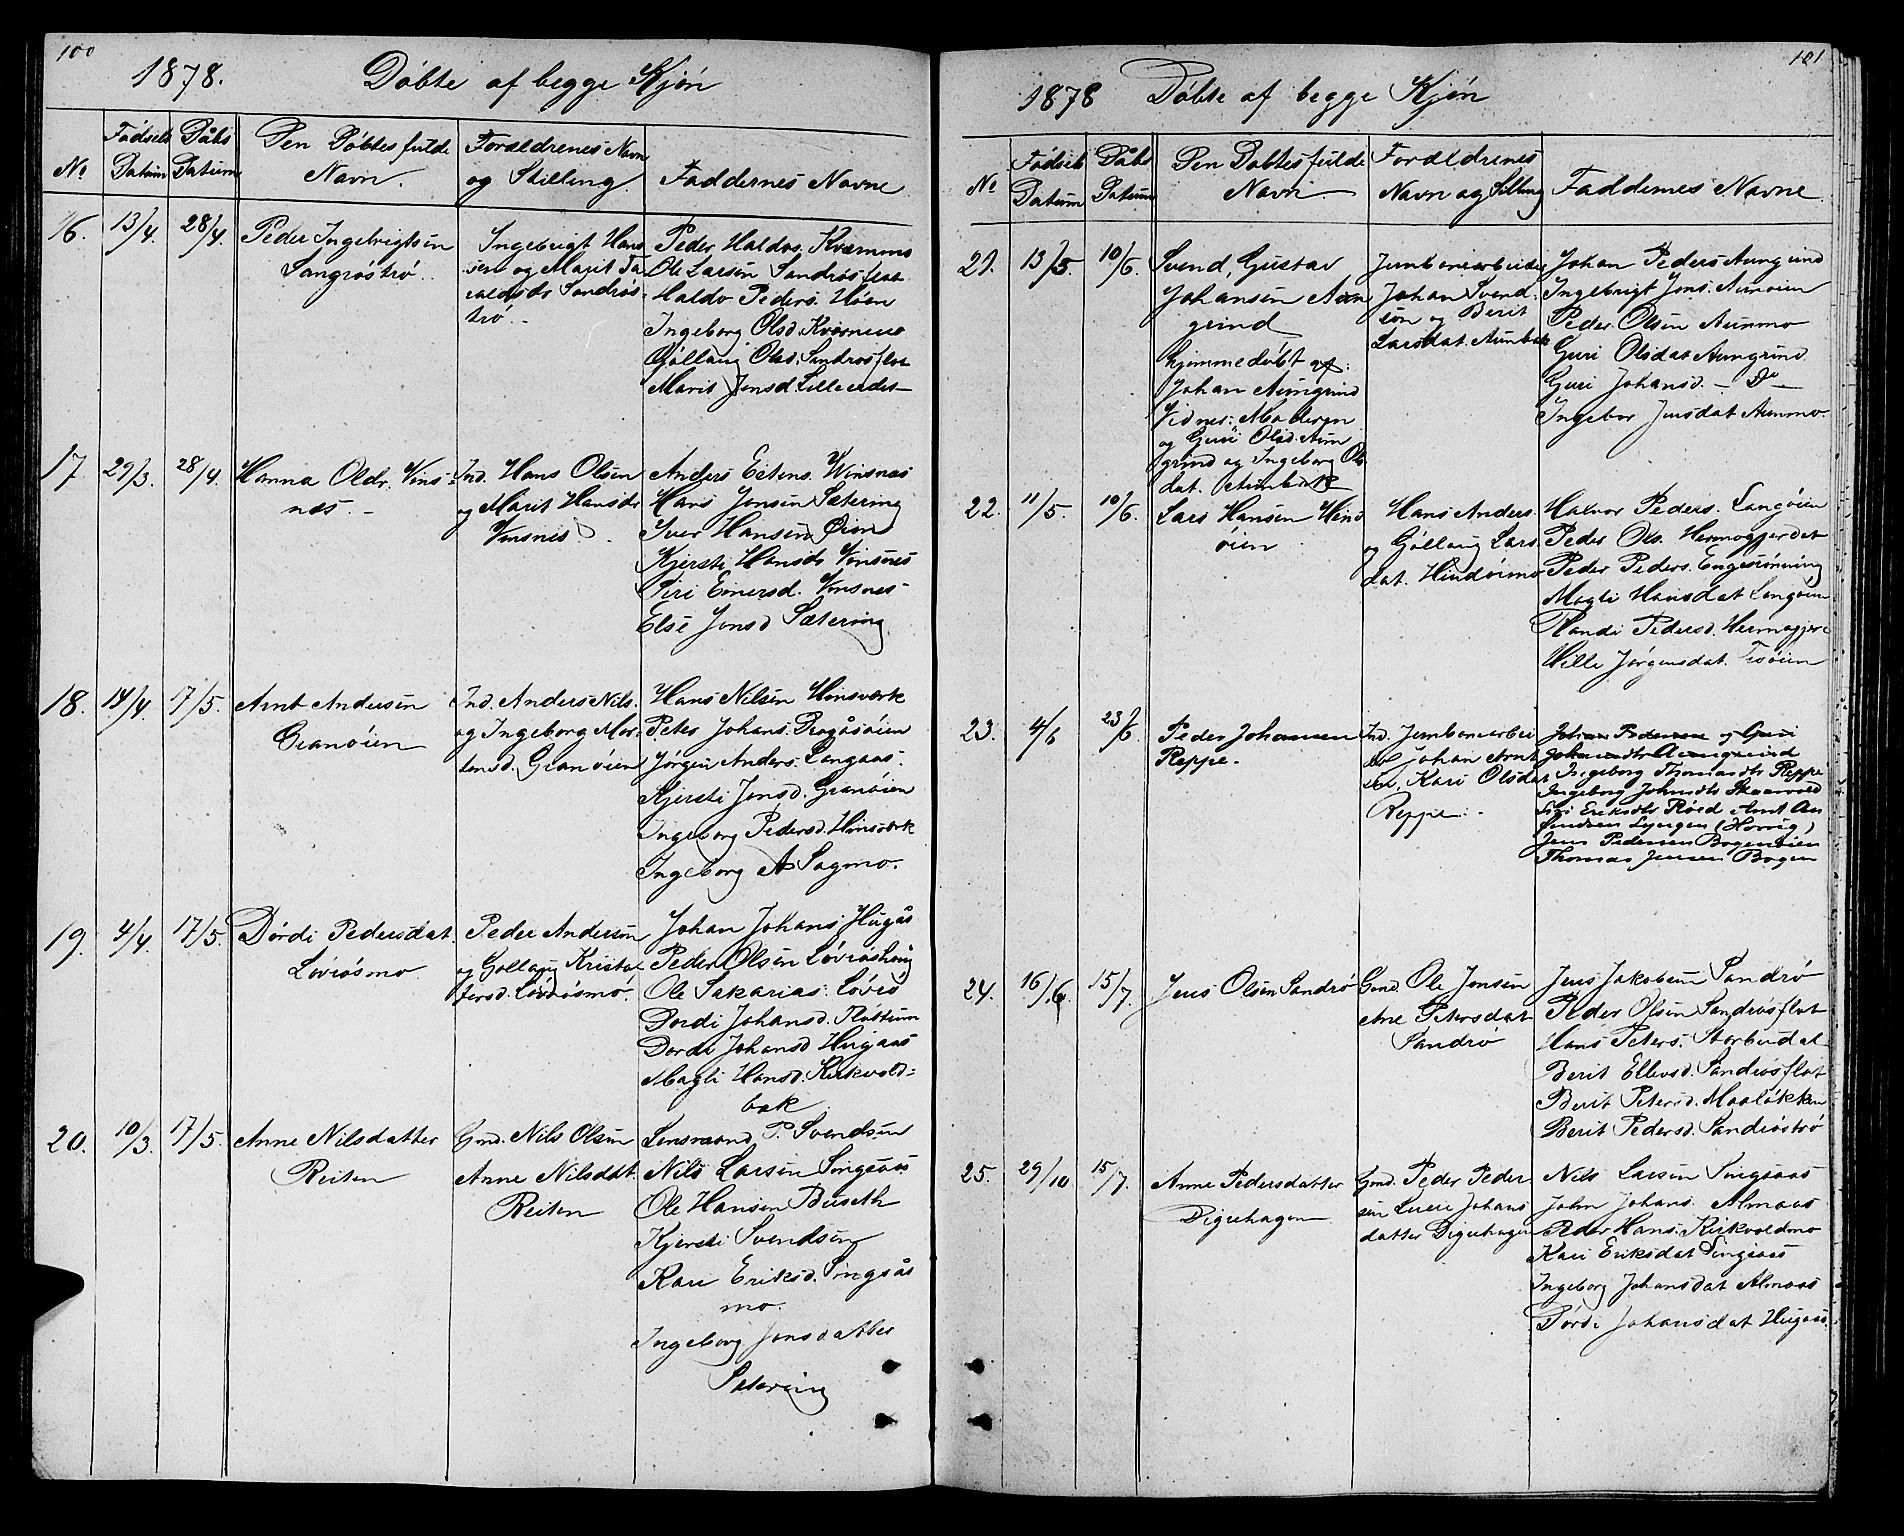 100
1878. Döbte af begge Kjön
No
Födsels Datum
Dåbs Datum
Den Döbtes fulde Navn.
Forældrenes Navn og Stilling
Faddernes Navne
16. 13/4. 28/4 Peder Ingebrigtsen
Sangröströ.
Ingebrigt Hans
sen og Marit Ta
raldsdr Sandrös-
trö.
Peder Haldos. Kvæmmo
Ole Larsen Sandrösflat
Haldo Peders. Höen
Ingeborg Olsd. Kværnmo
Göllaug Olsd. Sandrösflat
Marit Jonsd. Lilleeidet
17. 29/3. 28/4. Hanna Oldr. Vins-
næs.
Ind. Hans Olsen
og Marit Hansdr
Vinsnes
Anders Estens. Winsnæs
Hans Jonsen Sætering
Iver Hansen Öien
Kjersti Hansdr Vinsnes
Siri Einersd. Vinsnes
Else Jonsd Sætering
18. 14/4. 17/5. Arnt Andersen
Granöien
Ind. Anders Nils.
og Ingeborg Mor-
tensd. Granöien
Hans Nilsen Hinsværk
Peter Johans. Dragåsöien
Jörgen Anders. Langaas.
Kjersti Jonsd. Granöien
Ingeborg Pedersd. Hinsværk
Ingeborg A Sagmo.
19. 4/4. 17/5. Dördi Pedersdat.
Lövrösmo
Peder Andersen
og Gollaug Kristo
fersd. Lövrösmo.
Johan Johans. Hugås
Peder Olsen Lövröshaug
Ole Sakarias. Lövrö
Dordi Johansd. Flottum
Dordi Johansd Hugaas
Magli Hansd. Kirkvold-
bak
20. 10/3. 17/5. Anne Nilsdatter
Reiten
Gmd. Nils Olsen
Anne Nilsdat.
Reiten
Lensmand P. Svendsen
Nils Larsen Singsaas
Ole Hansen Buseth
Kjersti Svendsen
Kari Eriksd. Singsås
mo.
Ingeborg Jonsdatter
Sætering
101
1878 Döbte af begge Kjön
No
Födsels Datum
Dåbs Datum
Den Döbtes fulde Navn.
Forældrenes Navn og Stilling
Faddernes Navne.
21. 13/5. 10/6. Svend, Gustav
Johansen Aun
grind
hjemmedöbt af:
Johan Aungrind
Vidner: Moderen
og Guri Olsd. Aun
grind og Ingeborg Ols
dat. Aunbak
Jernbanearbeider
Johan Svend-
sen og Berit
Larsdat. Aunbak
Johan Peders Aungrind
Ingebrigt Jons. Aunöien
Peder Olsen Aunmo
Guri Olsdat Aungrind
Guri Johansd. — Do —
Ingebor Jensdat Aunmo
22. 11/5. 10/6. Lars Hansen Hind
öien
Hans Anders.
og Göllaug Lars
dat. Hindöimo
Halvor Peders. Langöien
Peder Ols. Hermogjerdet
Peder Peders. Engesrönning
Magli Hansdat Langöien
Randi Pedersd. Hermogjer
Hille Jörgensdat. Troöien
23. 4/6 23/6 Peder Johansen
Reppe.
Ind. Jernbanearbei
der Johan Arnt
sen, Kari Olsdat
Reppe.
Johan Pedersen og Guri
Johansdtr Aungrind
Ingeborg Thomasdtr Reppe
Ingeborg Johnsdtr Skaarvold
Siri Eriksdtr Röed Arnt An
Lyngen (Horrig)
Jens Pedersen Bogenöien
Thomas Jensen Bogen
24. 16/6 15/7. Jens Olsen Sandrö
Gmd. Ole Jonsen
Ane Petersdat
Sandrö
Jens Jakobsen Sandrö
Peder Olsen Sandrösflat
Hans Peters. Storbudal
Berit Ellevsd. Sandrösflat
Berit Petersd. Maalökken
Berit Pedersd. Sandröströ
25. 29/10 15/7. Anne Pedersdatter
Digerhagen
Gmd. Peder Peder
sen Lucie Johans
datter Digerhagen
Nils Larsen Singsaas
John Johans. Almaas
Peder Hans. Kirkvoldmo
Kari Eriksdat Singsaas
Ingeborg Johansdat Almaas
Dördi Johansdat Hugaas.